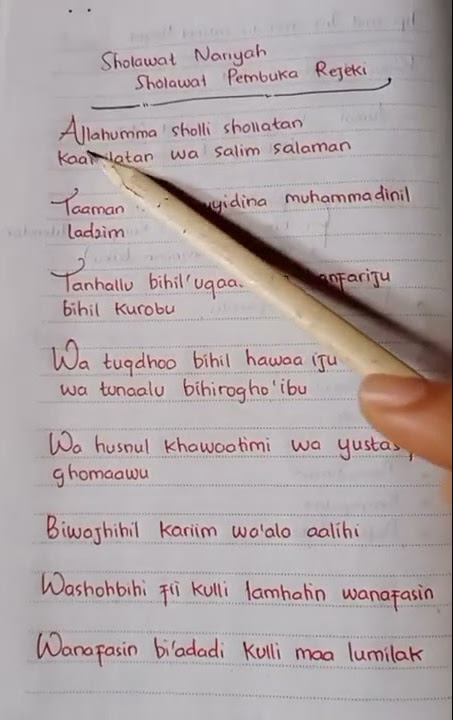 Sholawat Nariyah
Sholawat Pembuka Rejeki
Allahumma sholli shollatan
wa salim salaman
Taaman muhammadinil
ladzim
Tanhallu bihil'uqaa
bihil kurobu
Wa tuqdhoo bihil hawaa iju
wa tunaalu bihirogho'ibu
Wa husnul khawootimi wa
ghomaawu
Biwajhihil kariim wa'alo aalihi
Washohbihi fii kulli lamhatin wanafasin
Wanafasin bi'adadi kulli maa lumilak